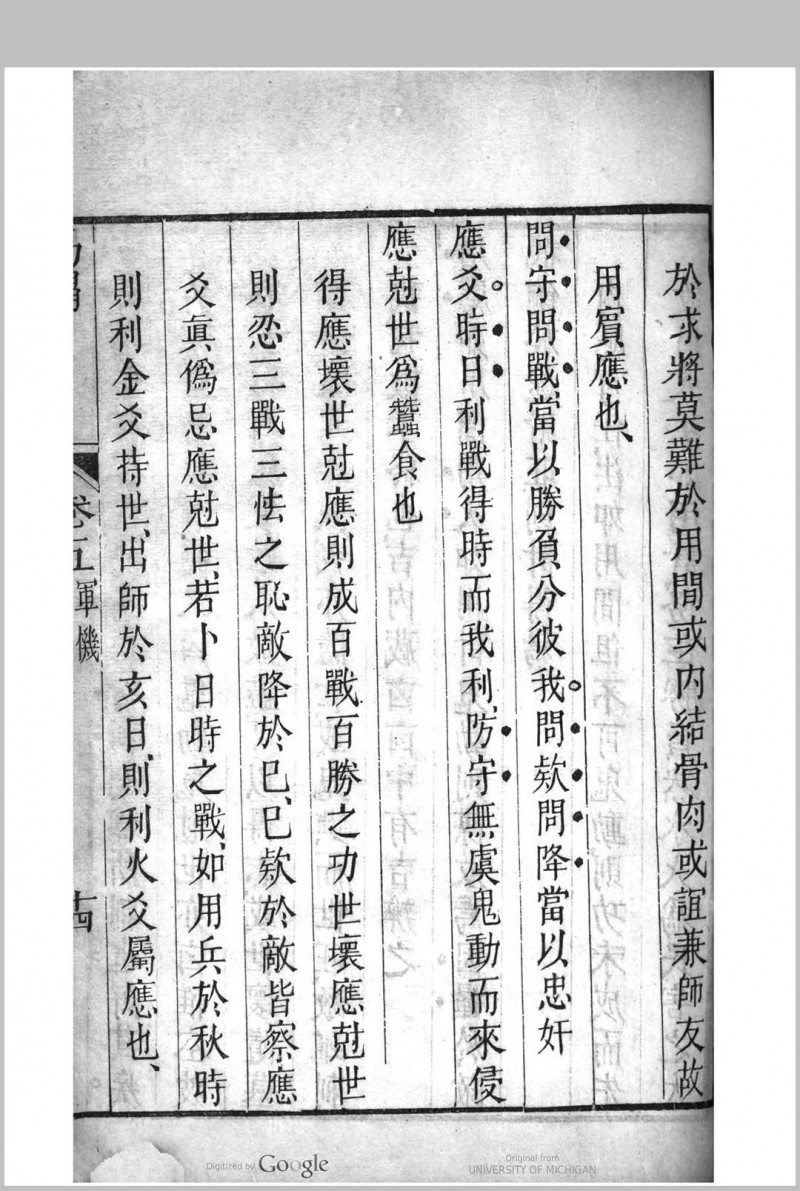 於求將莫難於用間或內結骨肉或誼兼師友故
用賓應也、
問守問戰、當以勝負分彼我。問欵問降當以忠奸
應爻。時日利戰得時而我利、防守無虞鬼動而來侵
應尅世爲蠶食也
得應壞世尅應則成百戰百勝之功世壞應尅世
則忍三戰三怯之恥敵降於已、已欵於敵皆察應
爻眞僞忌應尅世、若卜日時之戰、如用兵於秋時
則利金爻持世、出師於亥日、則利火爻屬應也、
卷五 軍機
十四
Digitized by Google
Original from
UNIVERSITY OF MICHIGAN